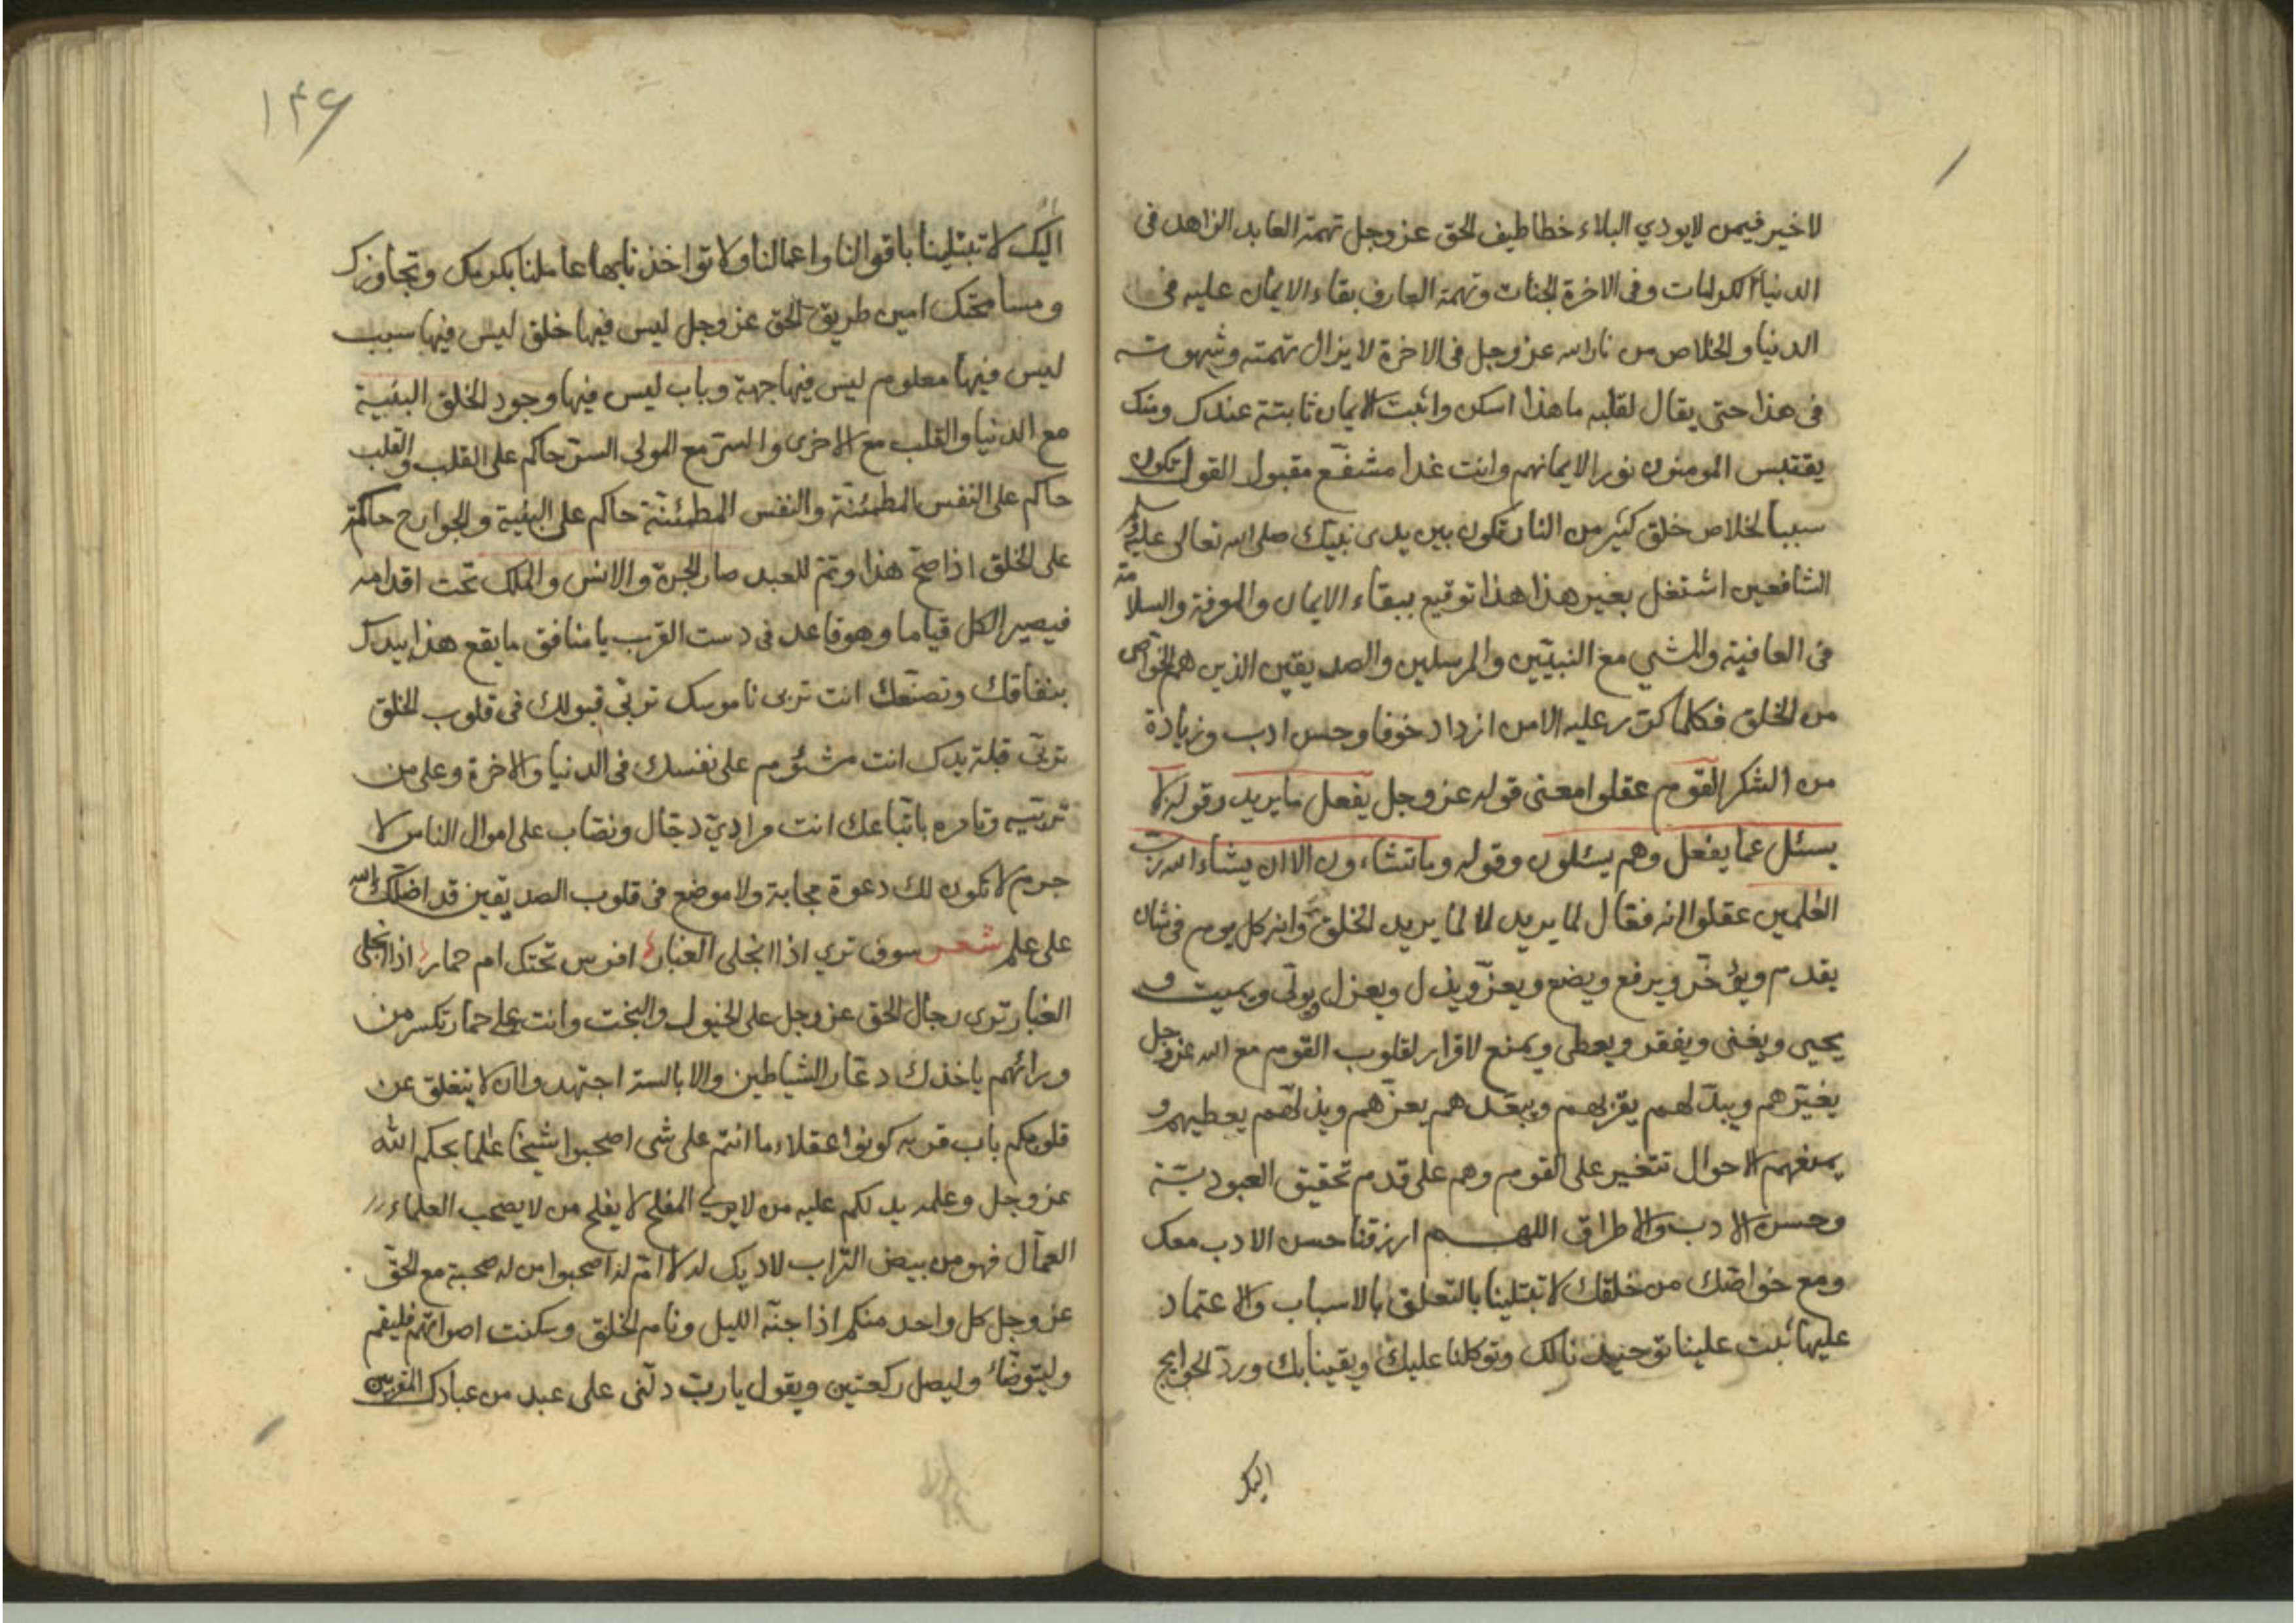 لا خير فيمن لا يودي البلاء خطاطيف الحق عز وجل تهمة العابد الزاهد فى
الدنيا الكرامات وفى الاخرة الجنات وتهمة العارف بقاء الايمان عليه فى
الدنيا والخلاص من نار الله عز وجل فى الاخرة لا يزال تهمته وشهوته
فى هذا حتى يقال لقلبه ما هذا اسكن واثبت الايمان ثابتة عندك ومنك
يقتبس المومنون نورا لايمانهم وانت غدا مشفّع مقبول القول تكون
سببا لخلاص خلق كثير من النار تكون بين يدى نبيك صلى الله تعالى عليه
الشافعين اشتغل بغير هذا هذا توقيع ببقاء الايمان والمعرفة والسلامة
فى العافية والمشي مع النبيّين والمرسلين والصديقين الذين هم الخواص
من الخلق فكلما كرّر عليه الامن ازداد خوفا وحسن ادب وزيادة
من الشكر القوم عقلوا معنى قوله عز وجل يفعل ما يريد وقوله لا
يسئل عما يفعل وهم يسئلون وقوله وما تشاءون الا ان يشاء الله ربّ
العٰلمين عقلوا انه فعّال لما يريد لا لما يريد الخلق وانه كل يوم فى شان
يقدم ويؤخّر ويرفع ويضع ويعزّ ويذل ويعزل ويولّى ويميت و
يحيى ويغنى ويفقر ويعطى ويمنع لا قرار لقلوب القوم مع الله عز وجل
يغيّرهم ويبدّلهم يقرّبهم ويبعّدهم يعزّهم ويذلّهم يعطيهم و
يمنعهم الاحوال تتغير على القوم وهم على قدم تحقيق العبوديّة
وحسن الادب والاطراق اللهم ارزقنا حسن الادب معك
ومع خواصّك من خلقك لا تبتلينا بالتعلق بالاسباب والاعتماد
عليها ثبت علينا توحيدنا لك وتوكلنا عليك ويقيننا بك وردّ الحوايج
اليك
١٤۶
اليك لا تبتلينا باقوالنا واعمالنا ولا تواخذنا بها عاملنا بكرمك وتجاوزك
ومسامحتك امين طريق الحق عز وجل ليس فيها خلق ليس فيها سبب
ليس فيها معلوم ليس فيها جهة وباب ليس فيها وجود الخلق البنية
مع الدنيا والقلب مع الاخرى والسرّ مع المولى السرّ حاكم على القلب والقلب
حاكم على النفس المطمئنّة والنفس المطمئنّة حاكم على البنية والجوارح حاكمة
على الخلق اذا صحّ هذا وتمّ للعبد صار الجنّ والانس والملك تحت اقدامه
فيصير الكل قياما وهو قاعد فى دست القرب يا منافق ما يقع هذا بيدك
بنفاقك وتصنّعك انت تربى ناموسك تربّى قبولك فى قلوب الخلق
تربّى قبلة يدك انت مشئوم على نفسك فى الدنيا والاخرة وعلى من
تربّيه وتامره باتّباعك انت مرادىّ دجّال ونصّاب على اموال الناس لا
جرم لا تكون لك دعوة مجابة ولا موضع فى قلوب الصديقين قد اضلّك الله
على علم شعر سوف تري اذا انجلى الغبار افرس تحتك ام حمار اذا انجلى
الغبار ترى رجال الحق عز وجل على الخيول والبخت وانت على حمار تكسر من
ورائهم ياخذك دعّار الشياطين والابالسة اجتهدوا ان لا يتغلق عن
قلوبكم باب قربه كونوا عقلاء ما انتم على شى اصحبوا شيخا عٰلما بحكم الله
عز وجل وعلمه يدلكم عليه من لا يرى المفلح لا يفلح من لا يصحب العلماء
العمّال فهو من بيض التّراب لا ديك له لا امّ له اصحبوا من له صحبة مع الحقّ
عز وجل كل واحد منكم اذا جنّه الليل ونام الخلق وسكنت اصواتهم فليقم
وليتوضّأ وليصل ركعتين ويقول يا ربّ دلّنى على عبد من عبادك المقربين